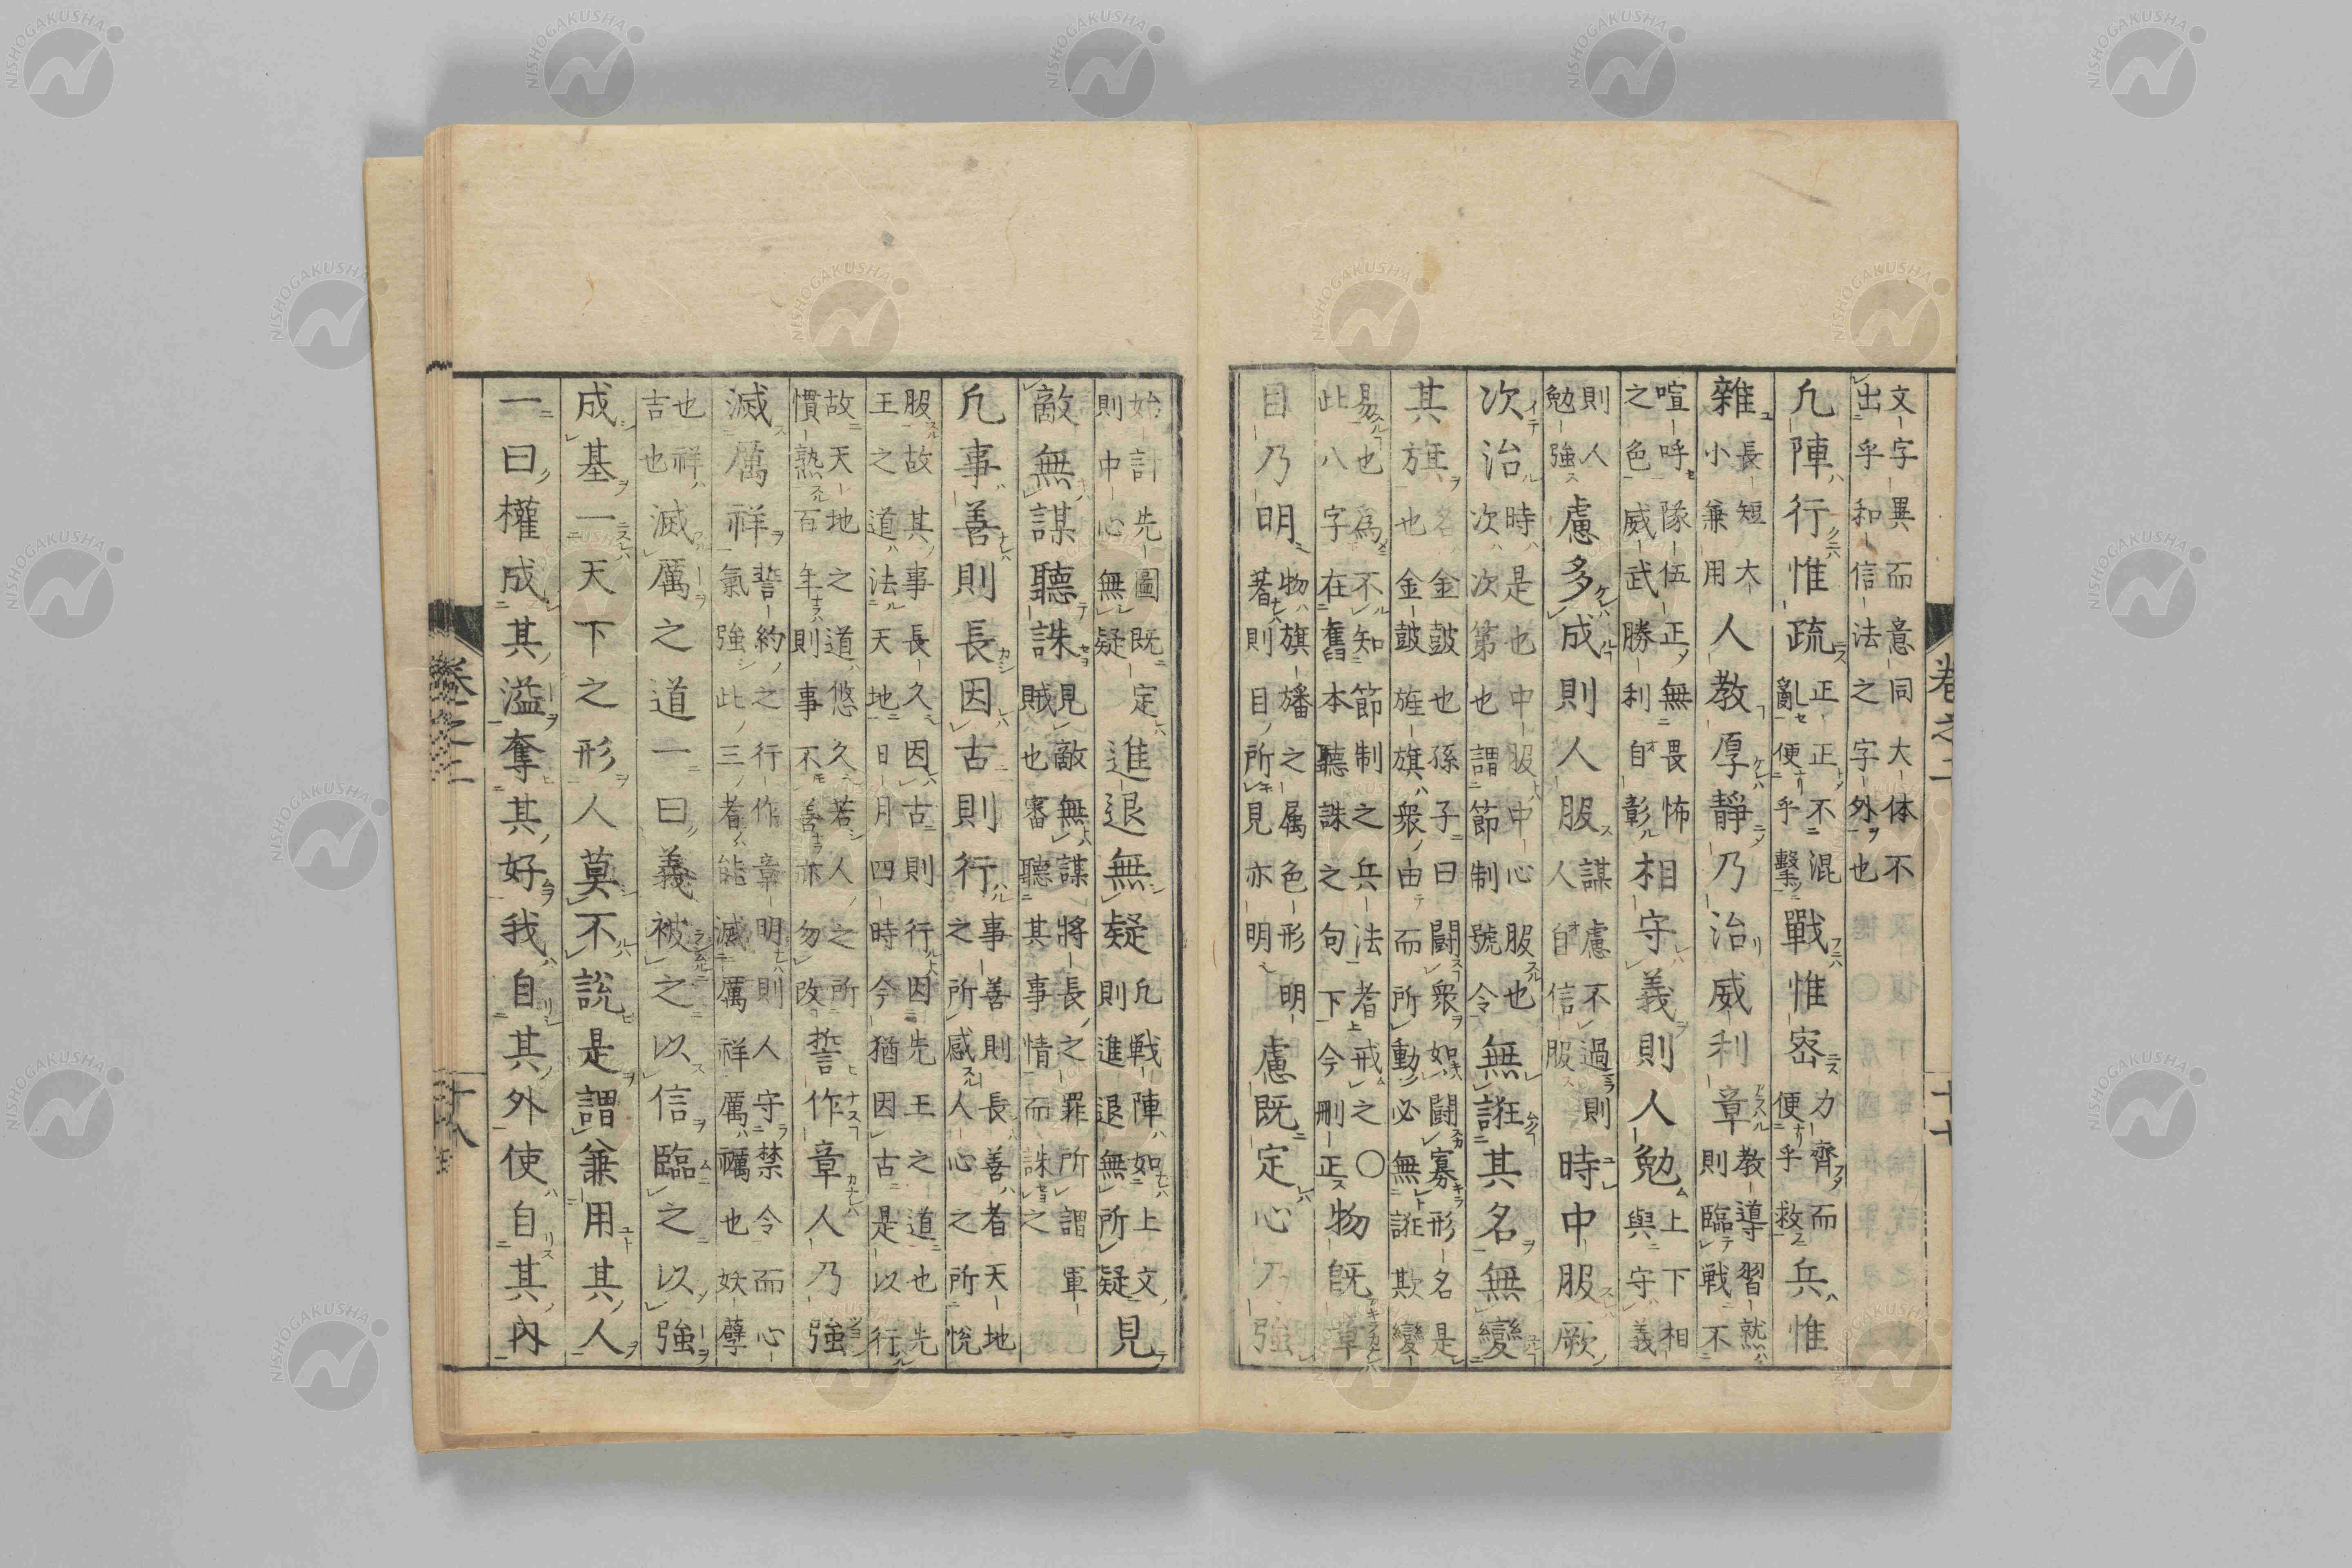 文字異而意同大体不
出乎和信法之字外也
凢陣行惟疏 正正不混 亂便乎擊 戰惟密 力齊而 便乎救 兵惟
雜 長短大 小兼用 人教厚靜乃治威利章 教導習就 則臨戦不
喧呼隊伍正無畏怖 之色威武勝利自彰 相守義則人勉 上下相 與守義
則人 勉強 慮多成則人服 謀慮不過則 人自信服 時中服厥
次治 時是也中服中心服也 次次第也謂節制號令 無誑其名無變
其旗 名金鼓也孫子曰闘衆如闘寡形名是 也金鼓旌旗衆由而所動必無誑欺變
易也為不知節制之兵法者戒之〇 此八字在舊本聽誅之句下今刪正 物既章
目乃明 物旗旛之属色形明 著則目所見亦明 慮既定心乃強
巻之二 十七
始計先圖既定 則中心無疑 進退無疑 凢戦陣如上文 則進退無所疑 見
敵無謀聽誅 見敵無謀將長之罪所謂軍 賊也審聽其事情而誅之
凢事善則長因古則行 事善則長善者天地 之所感人心之所悅
服故其事長久因古則行因先王之道也先 王之道法天地日月四時今猶因古是以行
故天地之道悠久若人之所 慣熟百年則事不善亦勿改 誓作章人乃強
滅厲祥 誓約之行作章明則人守禁令而心 氣強此三者能滅厲祥厲禍也妖孽
也祥 吉也 滅厲之道一曰義被之以信臨之以強
成基一天下之形人莫不說是謂兼用其人
一曰權成其溢奪其好我自其外使自其內
巻之二 十八
NISHOGAKUSHA